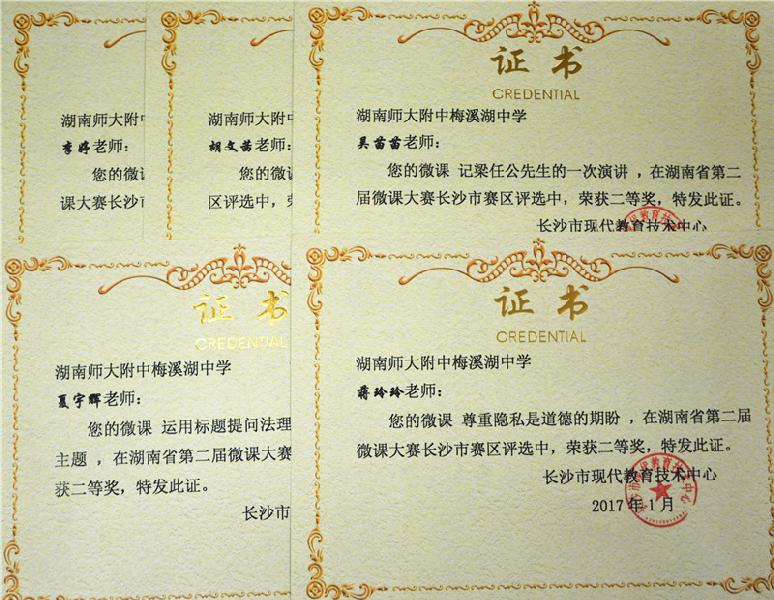 湖南师大附中
李婷老师:
您的微
课大赛长沙市
湖南师大附中
胡文茜老师:
您的微
区评选中,
证书
CREDENTIAL
湖南师大附中梅溪湖中学
吴苗苗老师:
您的微课 记梁任公先生的一次演讲 ,在湖南省第二
届微课大赛长沙市赛区评选中,荣获二等奖,特发此证。
长沙市现代教育技术中心
证书
CREDENTIAL
湖南师大附中梅溪湖中学
夏宇辉老师:
您的微课 运用标题提问法理
主题 ,在湖南省第二届微课大赛
获二等奖,特发此证。
长沙市
证书
CREDENTIAL
湖南师大附中梅溪湖中学
蒋玲玲老师:
您的微课 尊重隐私是道德的期盼 ,在湖南省第二届
微课大赛长沙市赛区评选中,荣获二等奖,特发此证。
长沙市现代教育技术中心
2017年1月